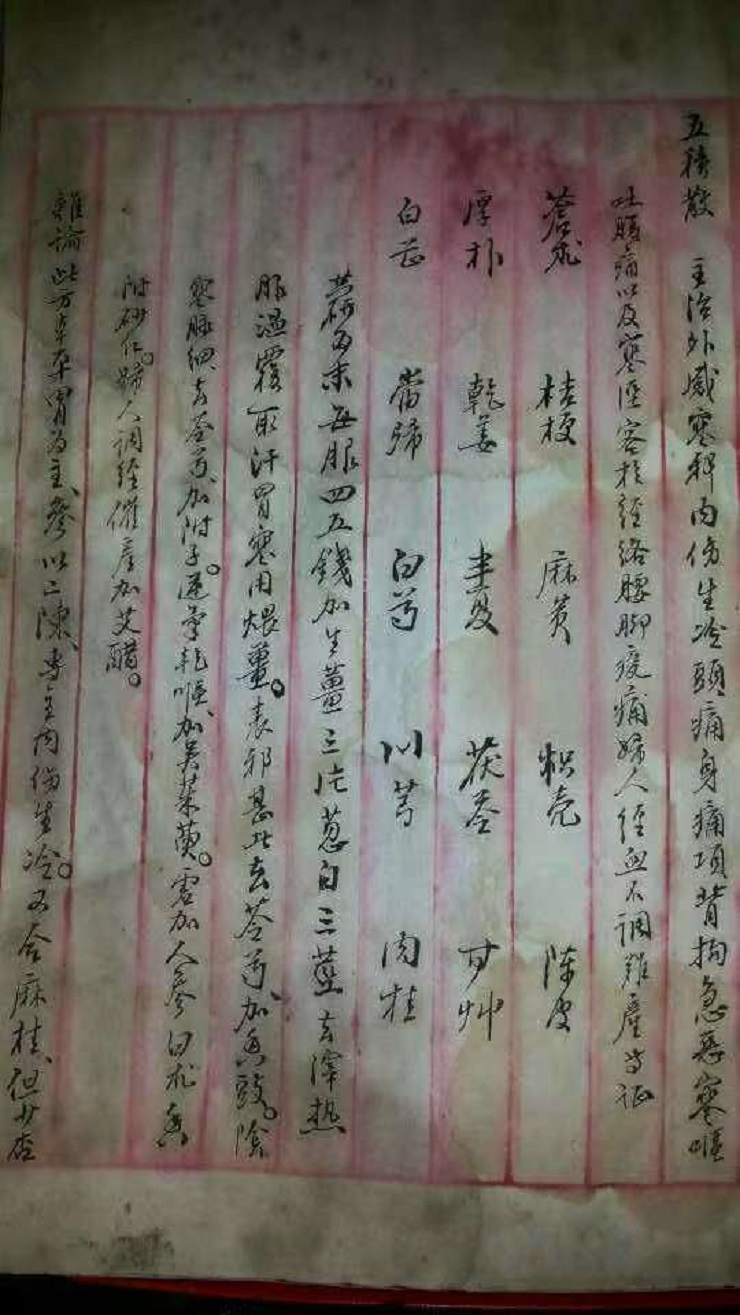 五積散　主治外感寒邪内伤生冷頭痛身痛項背拘急惡寒嘔
吐腹痛以及寒湿客於經络腰脚痠痛婦人經血不調難產等征
蒼朮　桔梗　麻黄　枳壳　陈皮
厚朴　乾姜　半夏　茯苓　甘艸
白芷　當歸　白芍　川芎　肉桂
為末每服四五錢加生薑三片葱白三莖去滓热
服温覆取汗胃寒用煨薑。表邪甚者去芍加香豉。陰
寒脉细去芍加附子。逆氣乾嘔加吴茱萸。虚加人參白朮
附砂仁。婦人調經催產加艾醋。
雜論此方本平胃為主參以二陳、专主内伤生冷。又合麻桂、但少杏